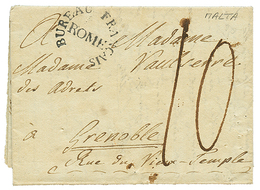 MALTA
BUREAU FRANÇAIS
ROME
A Madame
Madame Vaulserre
des Adrets
10
à Grenoble
Rue du Vieux Temple